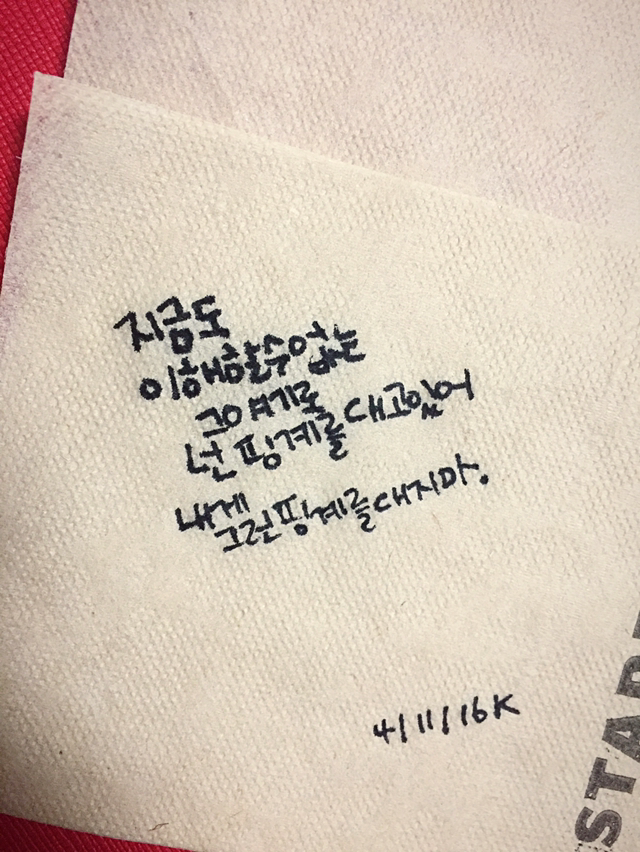 지금도
이해할수없는
그얘기로
넌 핑계를대고있어
내게
그런핑계를대지마.
4/11/16K
STAR